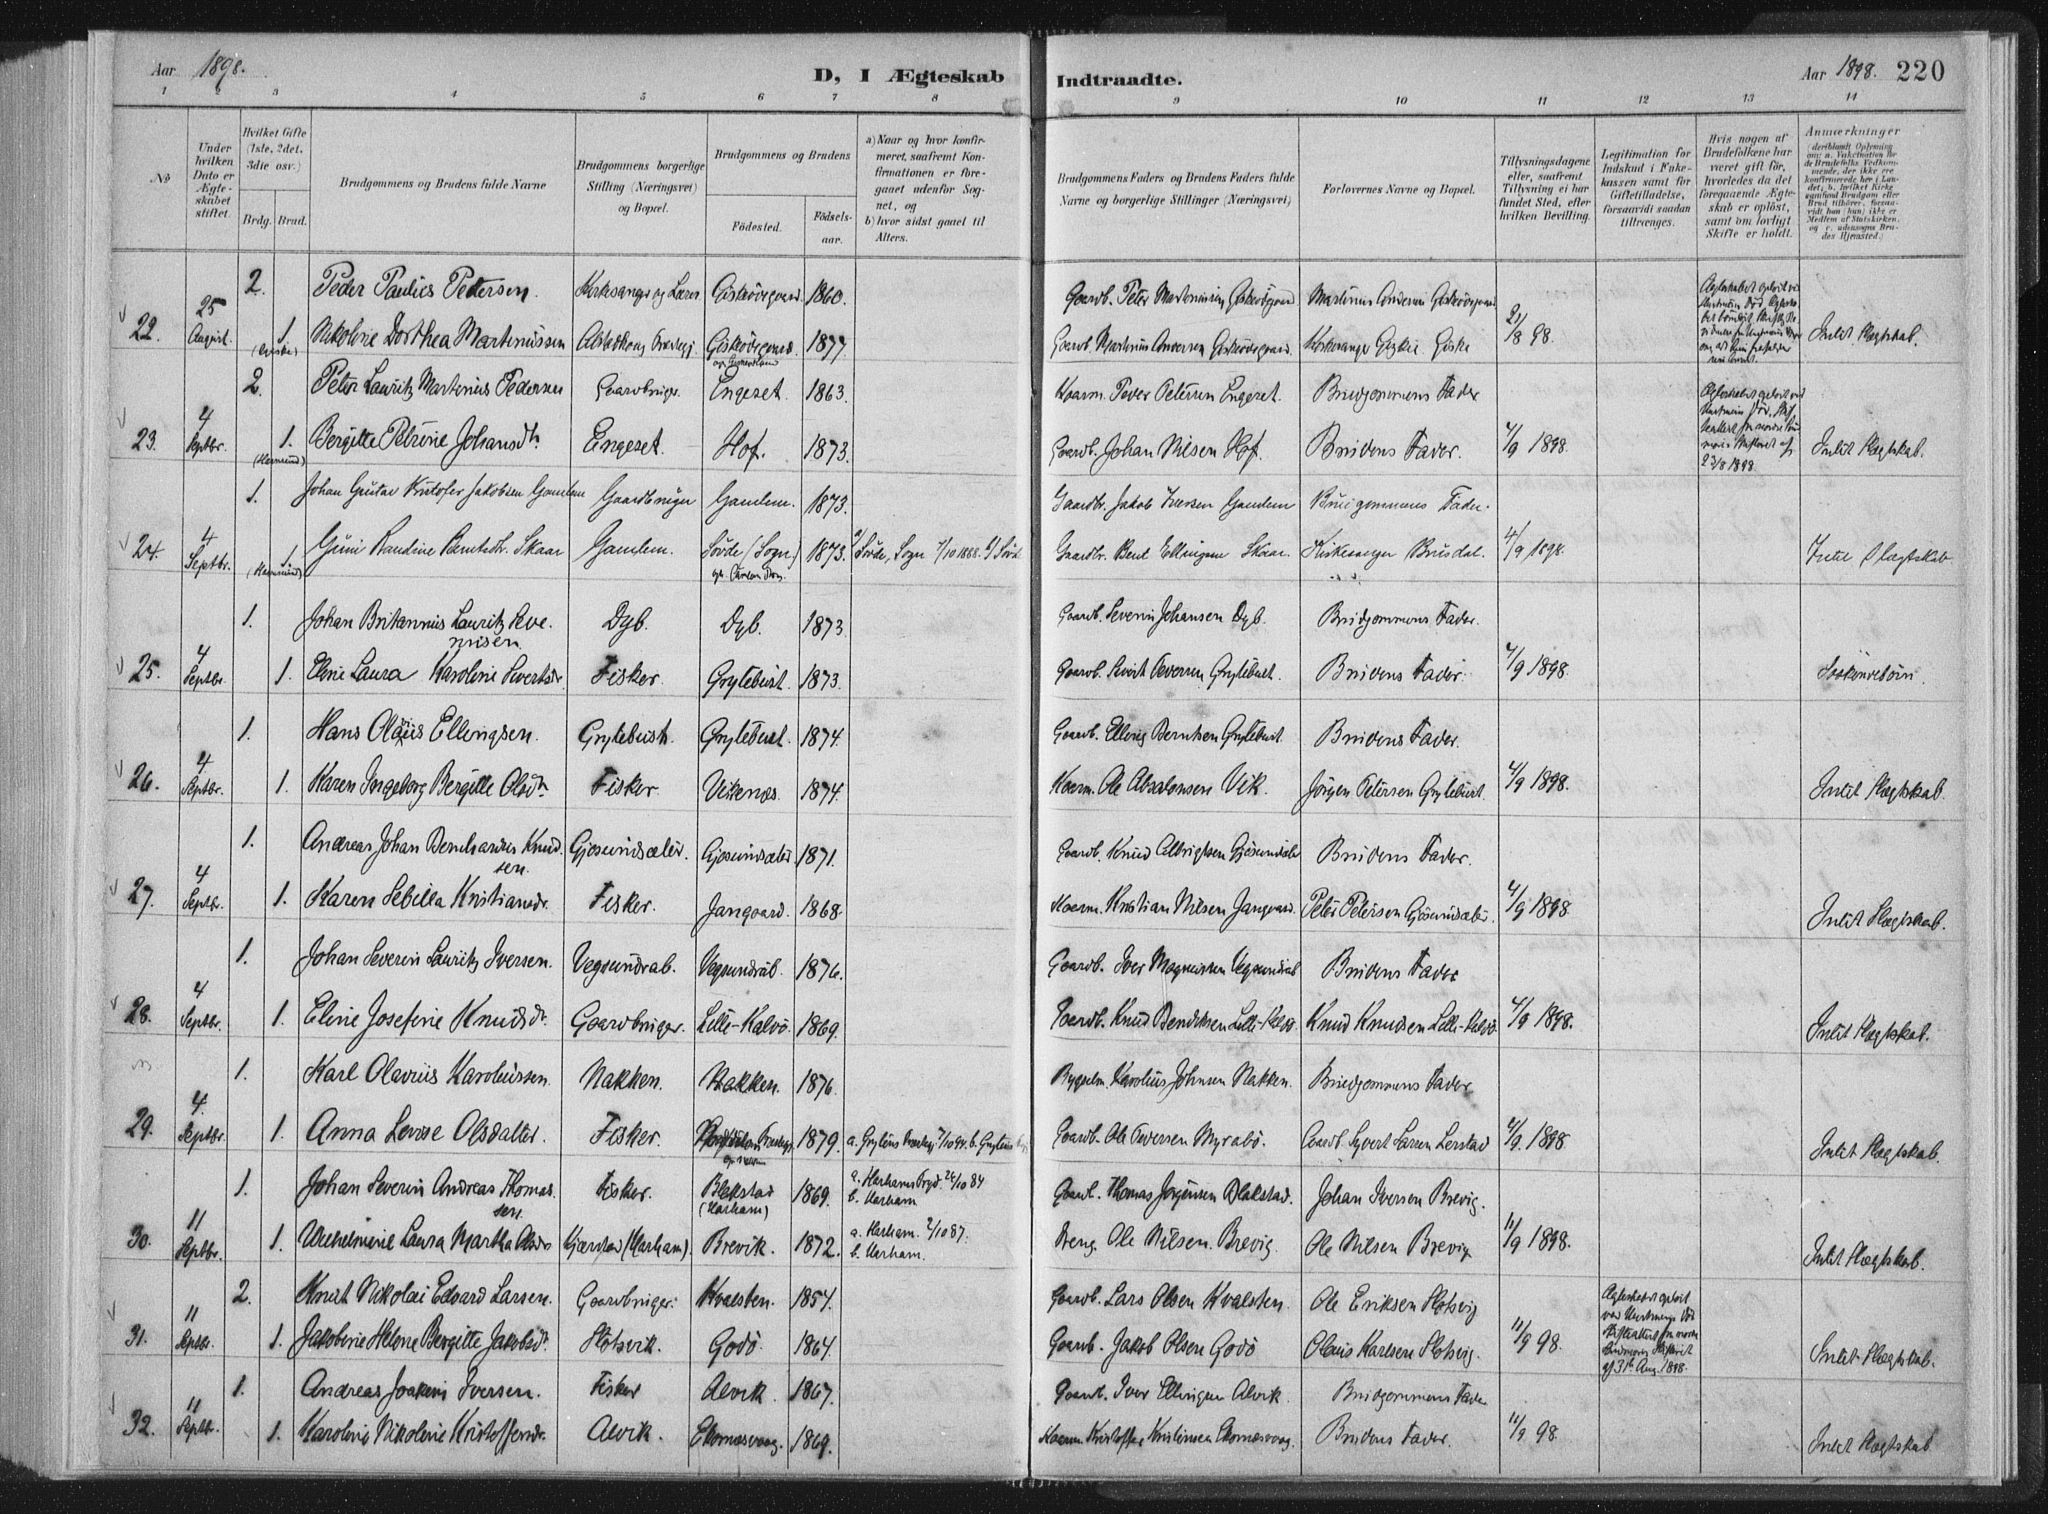 Aar 1898.
D, I Ægteskab
Indtraadte.
Aar 1898. 220
1 2 3 4 5 6 7 8 9 10 11 12 13 14
No
Under hvilken Dato er Ægteskabet stiftet.
Hvilket Gifte (1ste, 2det, 3die osv.)
Brdg. Brud.
Brudgommens og Brudens fulde Navne
Brudgommens borgerlige Stilling (Næringsvei) og Bopæl.
Brudgommens og Brudens
Fødested.
Fødselsaar.
a) Naar og hvor konfirmeret, saafremt Konfirmationen er foregaaet udenfor Sognet, og
b) hvor sidst gaaet til Alters.
Brudgommens Faders og Brudens Faders fulde Navne og borgerlige Stillinger (Næringsvei)
Forlovernes Navne og Bopæl.
Tillysningsdagene eller, saafremt Tillysning ei har fundet Sted, efter hvilken Bevilling.
Legitimation for Indskud i Enkekassen samt for Giftetilladelse, forsaavidt saadan tiltrænges.
Hvis nogen af Brudefolkene har været gift før, hvorledes da det foregaaende Ægteskab er opløst, samt om lovligt Skifte er holdt.
Anmærkninger
2. Peder Paulus Pettersen. Kirkesanger og Lærer Giskeødegaard 1860. Gaardb. Peter Martinussen Giskeødegaard Martinus Andersen Giskeødegaard
22. 25 August. 1 Nikoline Dorthea Martinussen Giskeødegaard. 1877. Gaardb. Martinus Andersen Giskeødegaard. Kirkesanger Giske 21/8 98. Intet Slægtskab.
2. Peter Lauritz Martinus Pedersen Gaardbruger Engeset. 1863. Kaarm. Peder Petersen Engeset. Brudgommens Fader
23. 4 Septbr. 1. Bergitte Petrine Johansdtr Engeset. Hof. 1873. Gaardb. Johan Nilsen Hof. Brudens Fader. 4/9 1898. Intet Slægtskab.
1. Johan Gustav Kristofer Jakobsen Gamlem Gaardbruger Gamlem. 1873. Gaardbr. Jakob Iversen Gamlem Brudgommens Fader.
24. 4 Septbr. 1 Guni Randine Berntsdtr. Skaar Gamlem. Søvde (Sogn) 1873. a) Søvde, Sogn 7/10 1888. b) Søvd Gaardbr. Bent Ellingsen Skaar. Kirkesanger Brusdal. 4/9 1898. Intet Slægtskab
1. Johan Britannius Lauritz Severinsen Dyb. Dyb. 1873 Gaardb. Severin Johansen Dyb. Brudgommens Fader.
25. 4 Septbr. 1. Eline Laura Karoline Sivertsdr. Fisker. Grytebust. 1873. Gaardb. Sivert Seversen Grytebust. Brudens Fader. 4/9 1898. Søskendebørn.
1. Hans Olaus Ellingsen. Grytebust. Grytebust. 1874. Gaardb. Elling Berntsen Grytebust. Brudens Fader.
26. 4 Septbr. 1. Karen Ingeborg Bergitte Olsdtr Fisker. Vikenæs. 1874. Kaarm. Ole Absalonsen Vik. Jørgen Petersen Grytebust. 4/9 1898. Intet Slægtskab.
1. Andreas Johan Bernhardus Knudsen. Gjøsundsæter. Gjøsundsæter 1871. Gaardb. Knud Albrigtsen Gjøsundsæter Brudens Fader.
27. 4 Septbr. 1. Karen Sebilla Kristiansdr. Fisker. Jangaard. 1868 Kaarm. Kristian Nilsen Jangaard. Peter Petersen Gjøsundsæter. 4/9 1898. Intet Slægtskab.
1. Johan Severin Lauritz Iversen. Vegsundrab. Vegsundrab. 1876. Gaardb. Iver Magnussen Vegsundrab Brudens Fader
28. 4 Septbr. 1. Eline Josefine Knudsdtr Gaardbruger. Lille-Kalvø. 1869. Gaardb. Knud Bendiksen Lille-Kalvø. Knud Knudsen Lille-Kalvø. 4/9 1898. Intet Slægtskab.
1. Karl Olavius Karoliussen. Nakken. Nakken. 1876. Bygselm. Karolius Johnsen Nakken. Brudgommens Fader
29. 4. Septbr. 1. Anna Lovise Olsdatter. Fisker. 1879. Gaardb. Ole Seversen Myrabø. Gaardb. Syvert Larsen Lerstad 4/9. 1898 Intet Slægtskab.
1. Johan Severin Andreas Thomassen. Fisker. Blakstad (Harham) 1869. a. Harhams Prgd. 26/10 84 b. Harham Gaardb. Thomas Jørgensen Blakstad. Johan Iversen Brevig.
30. 11 Septbr. 1. Vilhelmine Laura Martha Olsdr Kjærstad (Harham). Brevik. 1872. a. Harham. 2/10 87. b. Harham. Dreng Ole Nilsen Brevig. Ole Nilsen Brevig 11/9 1898. Intet Slægtskab.
2. Knut Nikolai Edvard Larsen. Gaardbruger. Kvalsten. 1854. Gaardb. Lars Olsen Kvalsten. Ole Eriksen Slotsvig
31. 11 Septbr. 1. Jakobine Helene Bergitte Jakobsdr. Slotsvik. Godø. 1864. Gaardb. Jakob Olsen Godø Olaus Karlsen Slotsvig. 11/9 98. Intet Slægtskab.
1. Andreas Joakim Iversen. Fisker Alvik. 1867. Gaardb. Iver Ellingsen Alvik Brudgommens Fader
32. 11 Septbr. 1. Karoline Nikoline Kristoffersdr. Alvik. Ekornæsvaag. 1869. Kaarm. Kristoffer Kristensen Ekornæsvaag. Brudens Fader. 11/9 98. Intet Slægtskab